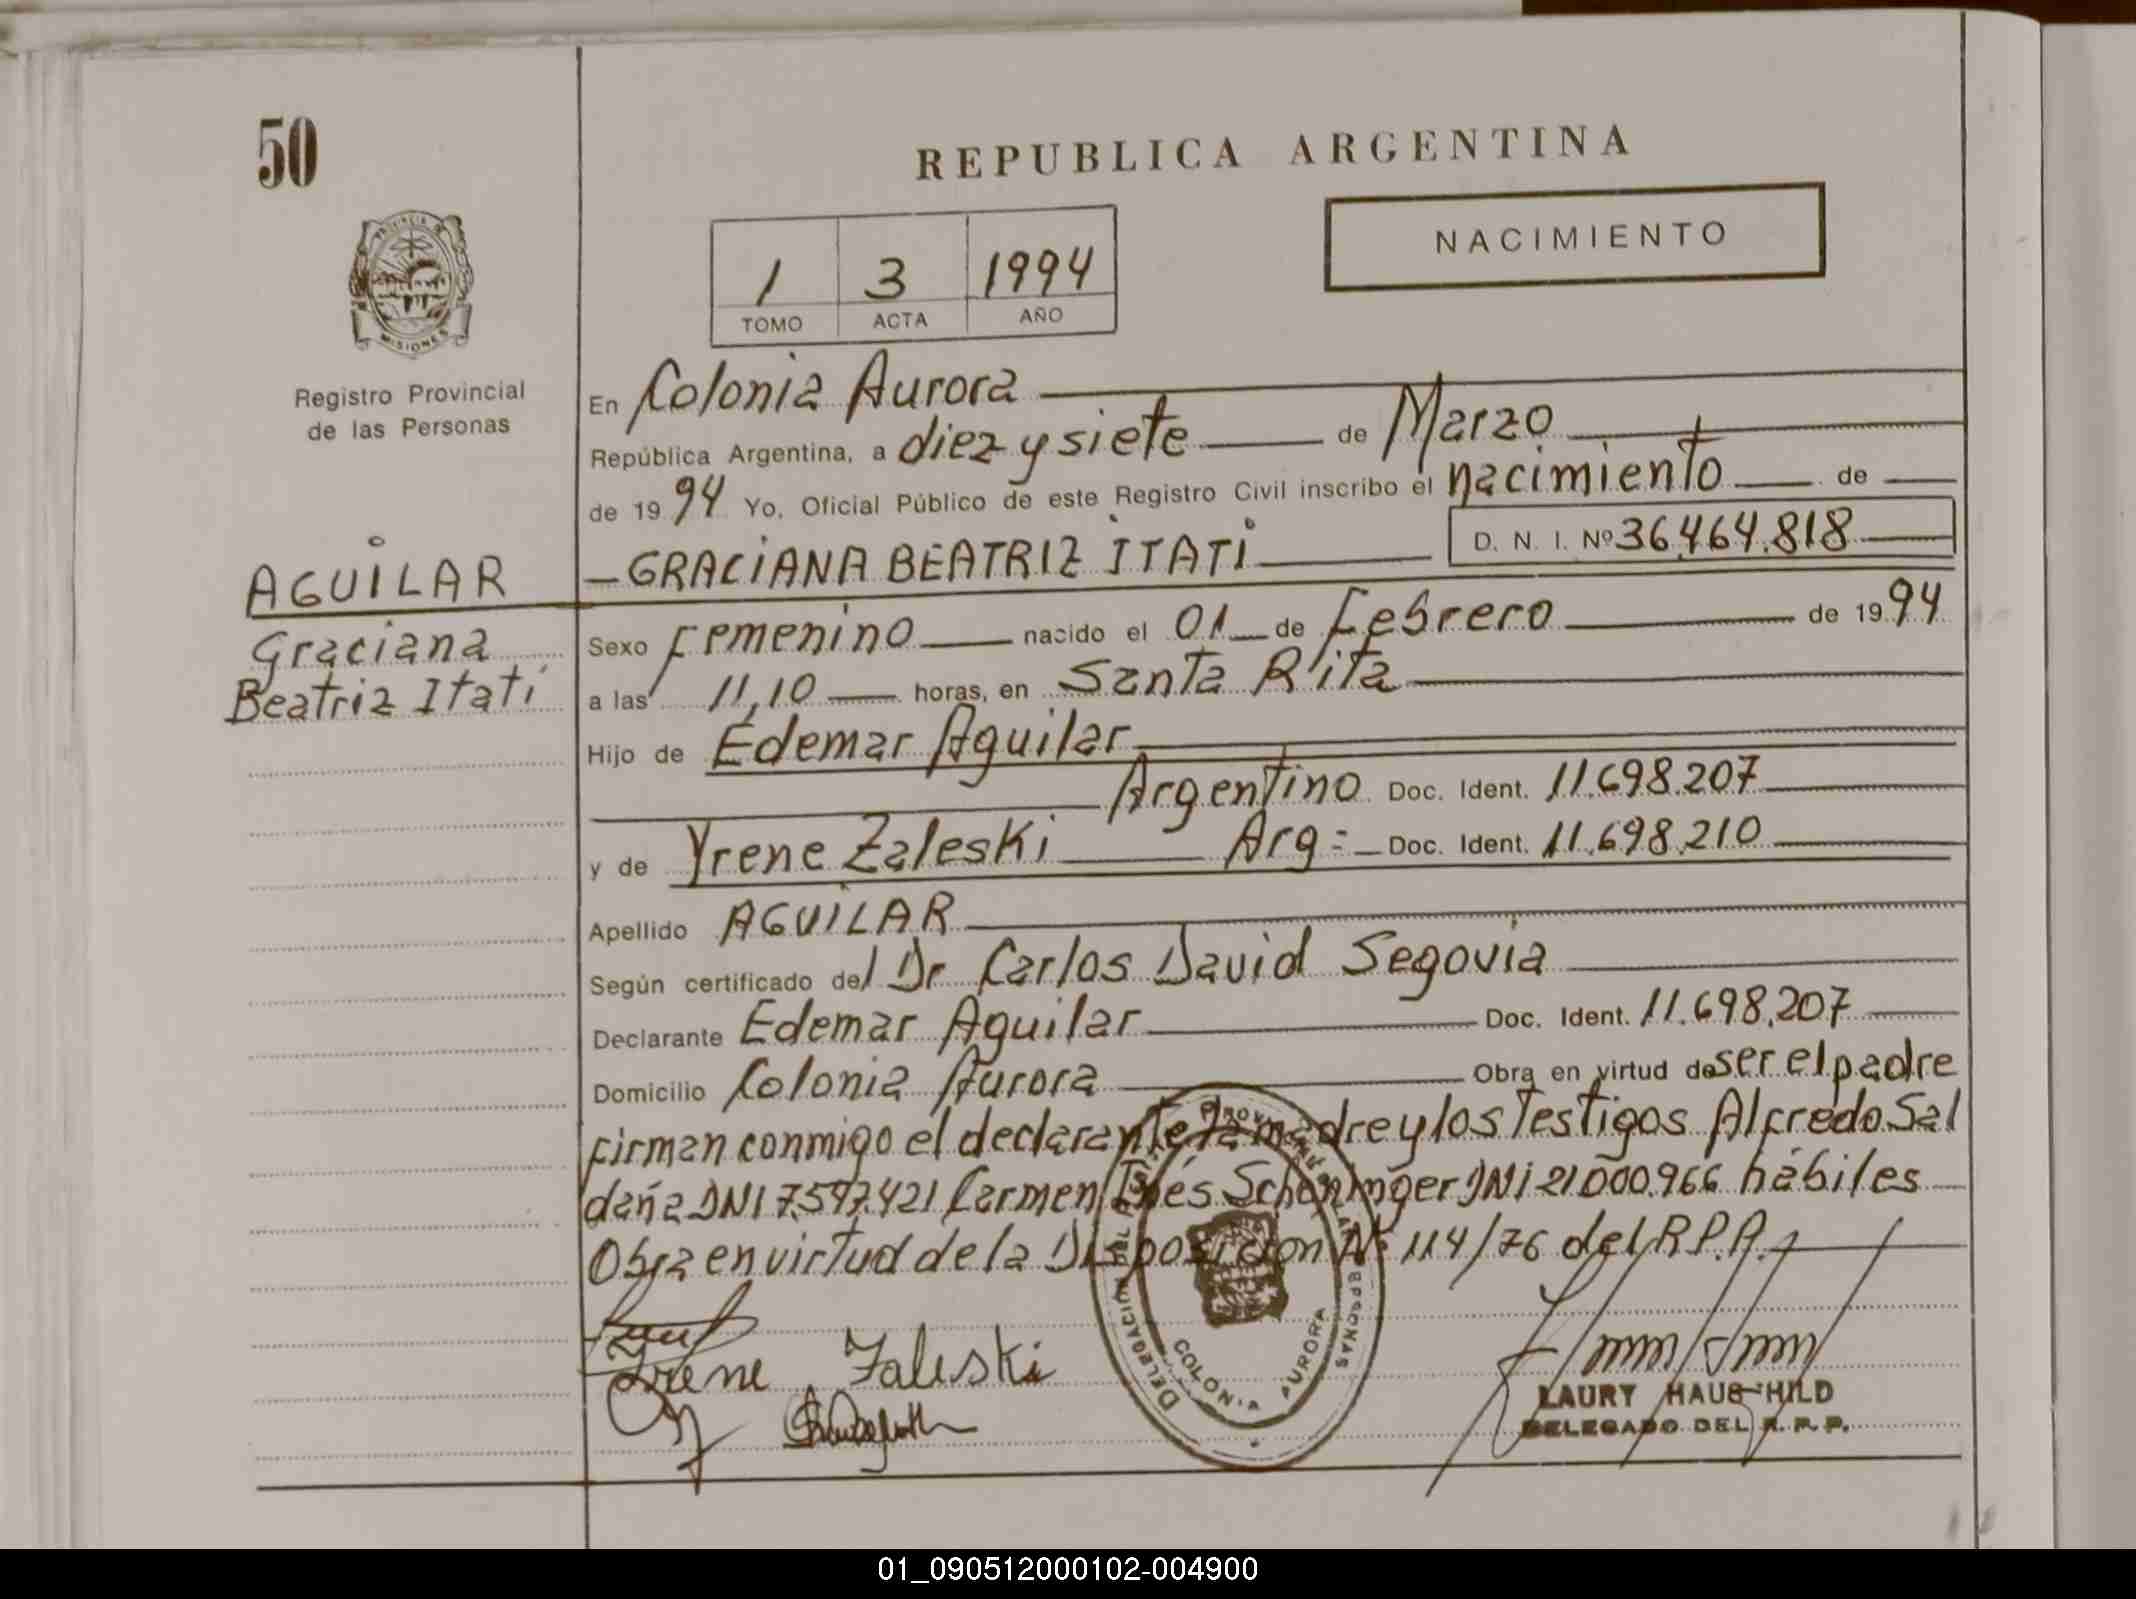 50
REPUBLICA ARGENTINA
NACIMIENTO
1 3 1994
TOMO ACTA AÑO
PROVINCIA DE
MISIONES
Registro Provincial
de las Personas
AGUILAR
Graciana
Beatriz Itatí
En Colonia Aurora
República Argentina, a diez y siete de Marzo
de 1994 Yo, Oficial Público de este Registro Civil inscribo el nacimiento de
GRACIANA BEATRIZ ITATI D. N. I. Nº 36.464.818
Sexo Femenino nacido el 01 de Febrero de 1994
a las 11,10 horas, en Santa Rita
Hijo de Edemar Aguilar
Argentino Doc. Ident. 11.698.207
y de Yrene Zaleski Arg= Doc. Ident. 11.698.210
Apellido AGUILAR
Según certificado del Dr Carlos David Segovia
Declarante Edemar Aguilar Doc. Ident. 11.698.207
Domicilio Colonia Aurora Obra en virtud de ser el padre
firman conmigo el declarante la madre y los Testigos Alfredo Sal
daña DNI 7.597.421 Carmen Inés Schoninger DNI 21000.966 hábiles
Obra en virtud de la Disposición Nº 114/76 del R.P.P.
Yrene Zaleski
DELEGACIÓN DEL
COLONIA AURORA
LAURY HAUSCHILD
DELEGADO DEL R. P. P.
01_090512000102-004900